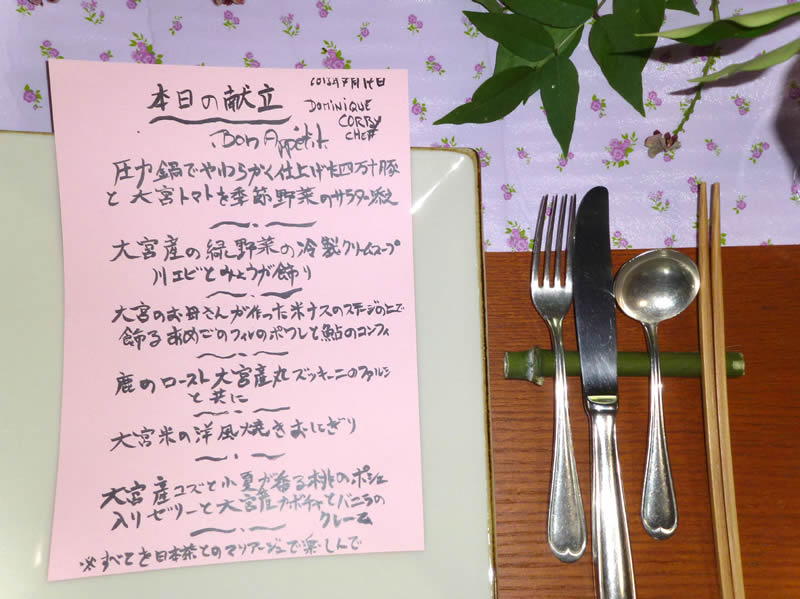 本日の献立
2013年7月14日
DOMINIQUE
CORBY
CHEF
Bon Appétit.
圧力鍋でやわらかく仕上げた四万十豚
と大宮トマトを季節野菜のサラダ添え
大宮産の緑野菜の冷製クリームスープ
川エビとみょうが飾り
大宮のお母さんが作った米ナスのステージの上で
飾るあめごのフィレのポワレと鮎のコンフィ
鹿のロースト大宮産丸ズッキーニのファルシ
と共に
大宮米の洋風焼きおにぎり
大宮産ユズと小夏が香る桃のポシェ
入りゼリーと大宮産カボチャとバニラの
クレーム
※すべてを日本茶とのマリアージュで楽しんで